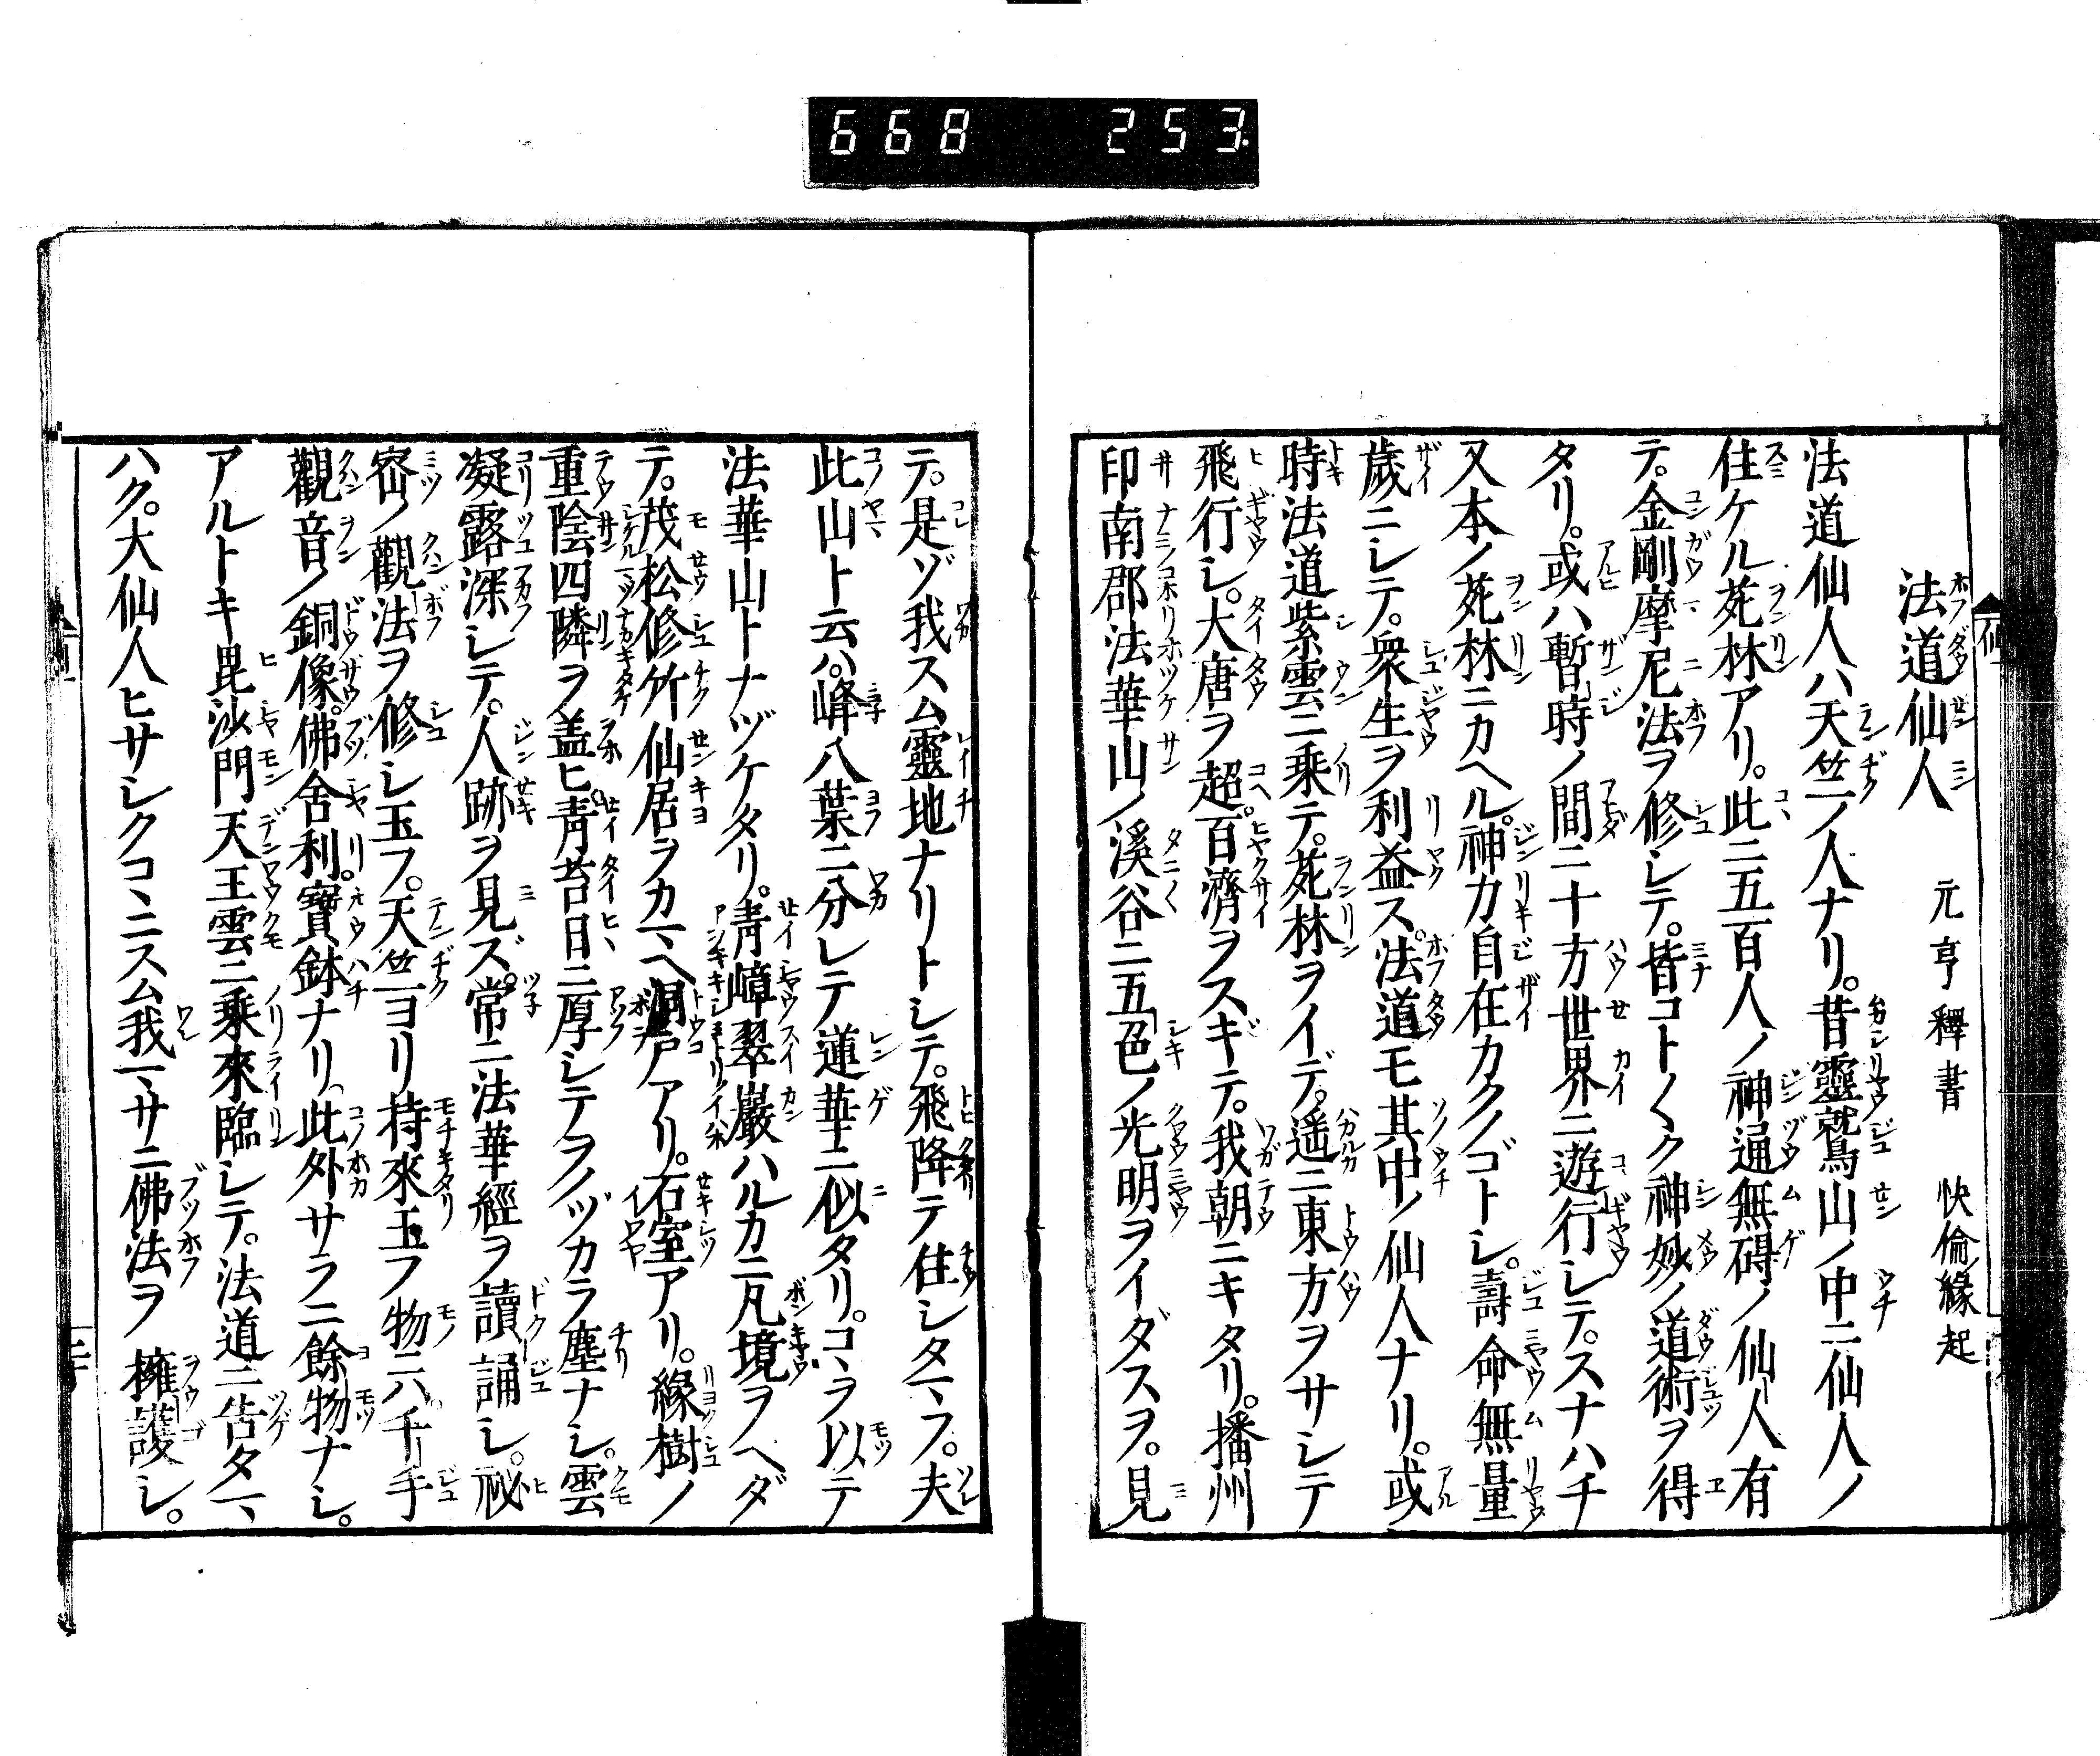 668 253
法道仙人 元亨釋書 快倫縁起
法道仙人ハ天竺ノ人ナリ。昔靈鷲山ノ中ニ仙人ノ
住ケル苑林アリ。此ニ五百人ノ神通無碍ノ仙人有
テ。金剛摩尼法ヲ修シテ。皆コト〱ク神妙ノ道術ヲ得
タリ。或ハ暫時ノ間ニ十方世界ニ遊行シテ。スナハチ
又本ノ苑林ニカヘル。神力自在カクノゴトシ。壽命無量
歳ニシテ。衆生ヲ利益ス。法道モ其中ノ仙人ナリ。或
時法道紫雲ニ乘テ。苑林ヲイデ。遥ニ東方ヲサシテ
飛行シ。大唐ヲ超。百濟ヲスギテ。我朝ニキタリ。播州
印南郡法華山ノ溪谷ニ五色ノ光明ヲイダスヲ。見
テ。是ゾ我スム靈地ナリトシテ。飛降テ住シタマフ。夫
此山ト云ハ。峰八葉ニ分レテ蓮華ニ似タリ。コヽヲ以テ
法華山トナヅケタリ。青嶂翠巖ハルカニ凡境ヲヘダ
テ。茂松修竹仙居ヲカマヘ洞戸アリ。石室アリ。緑樹ノ
重陰四隣ヲ盖ヒ。青苔日ニ厚シテヲノヅカラ塵ナシ。雲
凝露深シテ。人跡ヲ見ズ。常ニ法華經ヲ讀誦シ。祕
密ノ觀法ヲ修シ玉フ。天竺ヨリ持來玉フ物ニハ。千手
觀音ノ銅像。佛舎利。寶鉢ナリ。此外サラニ餘物ナシ。
アルトキ毘沙門天王雲ニ乘來臨シテ。法道ニ告タマ
ハク。大仙人ヒサシクコヽニスム我マサニ佛法ヲ擁護シ。